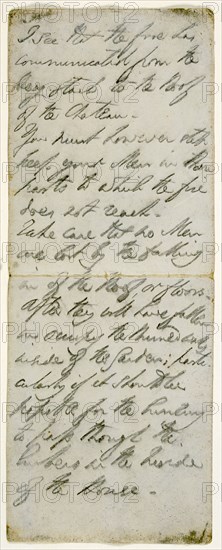 I see that the fire has
communicated from the
hay stack to the Roof
of the Chateau.
You must however still
keep your Men in those
parts to which the fire
does not reach.
Take care that no Men
are lost by the falling
in of the Roof or floors.
After they will have fallen
in occupy the Ruined walls
inside of the Garden; parti
cularly if it should be
possible for the Enemy
to pass through the
Embers in the Inside
of the House.
alamy